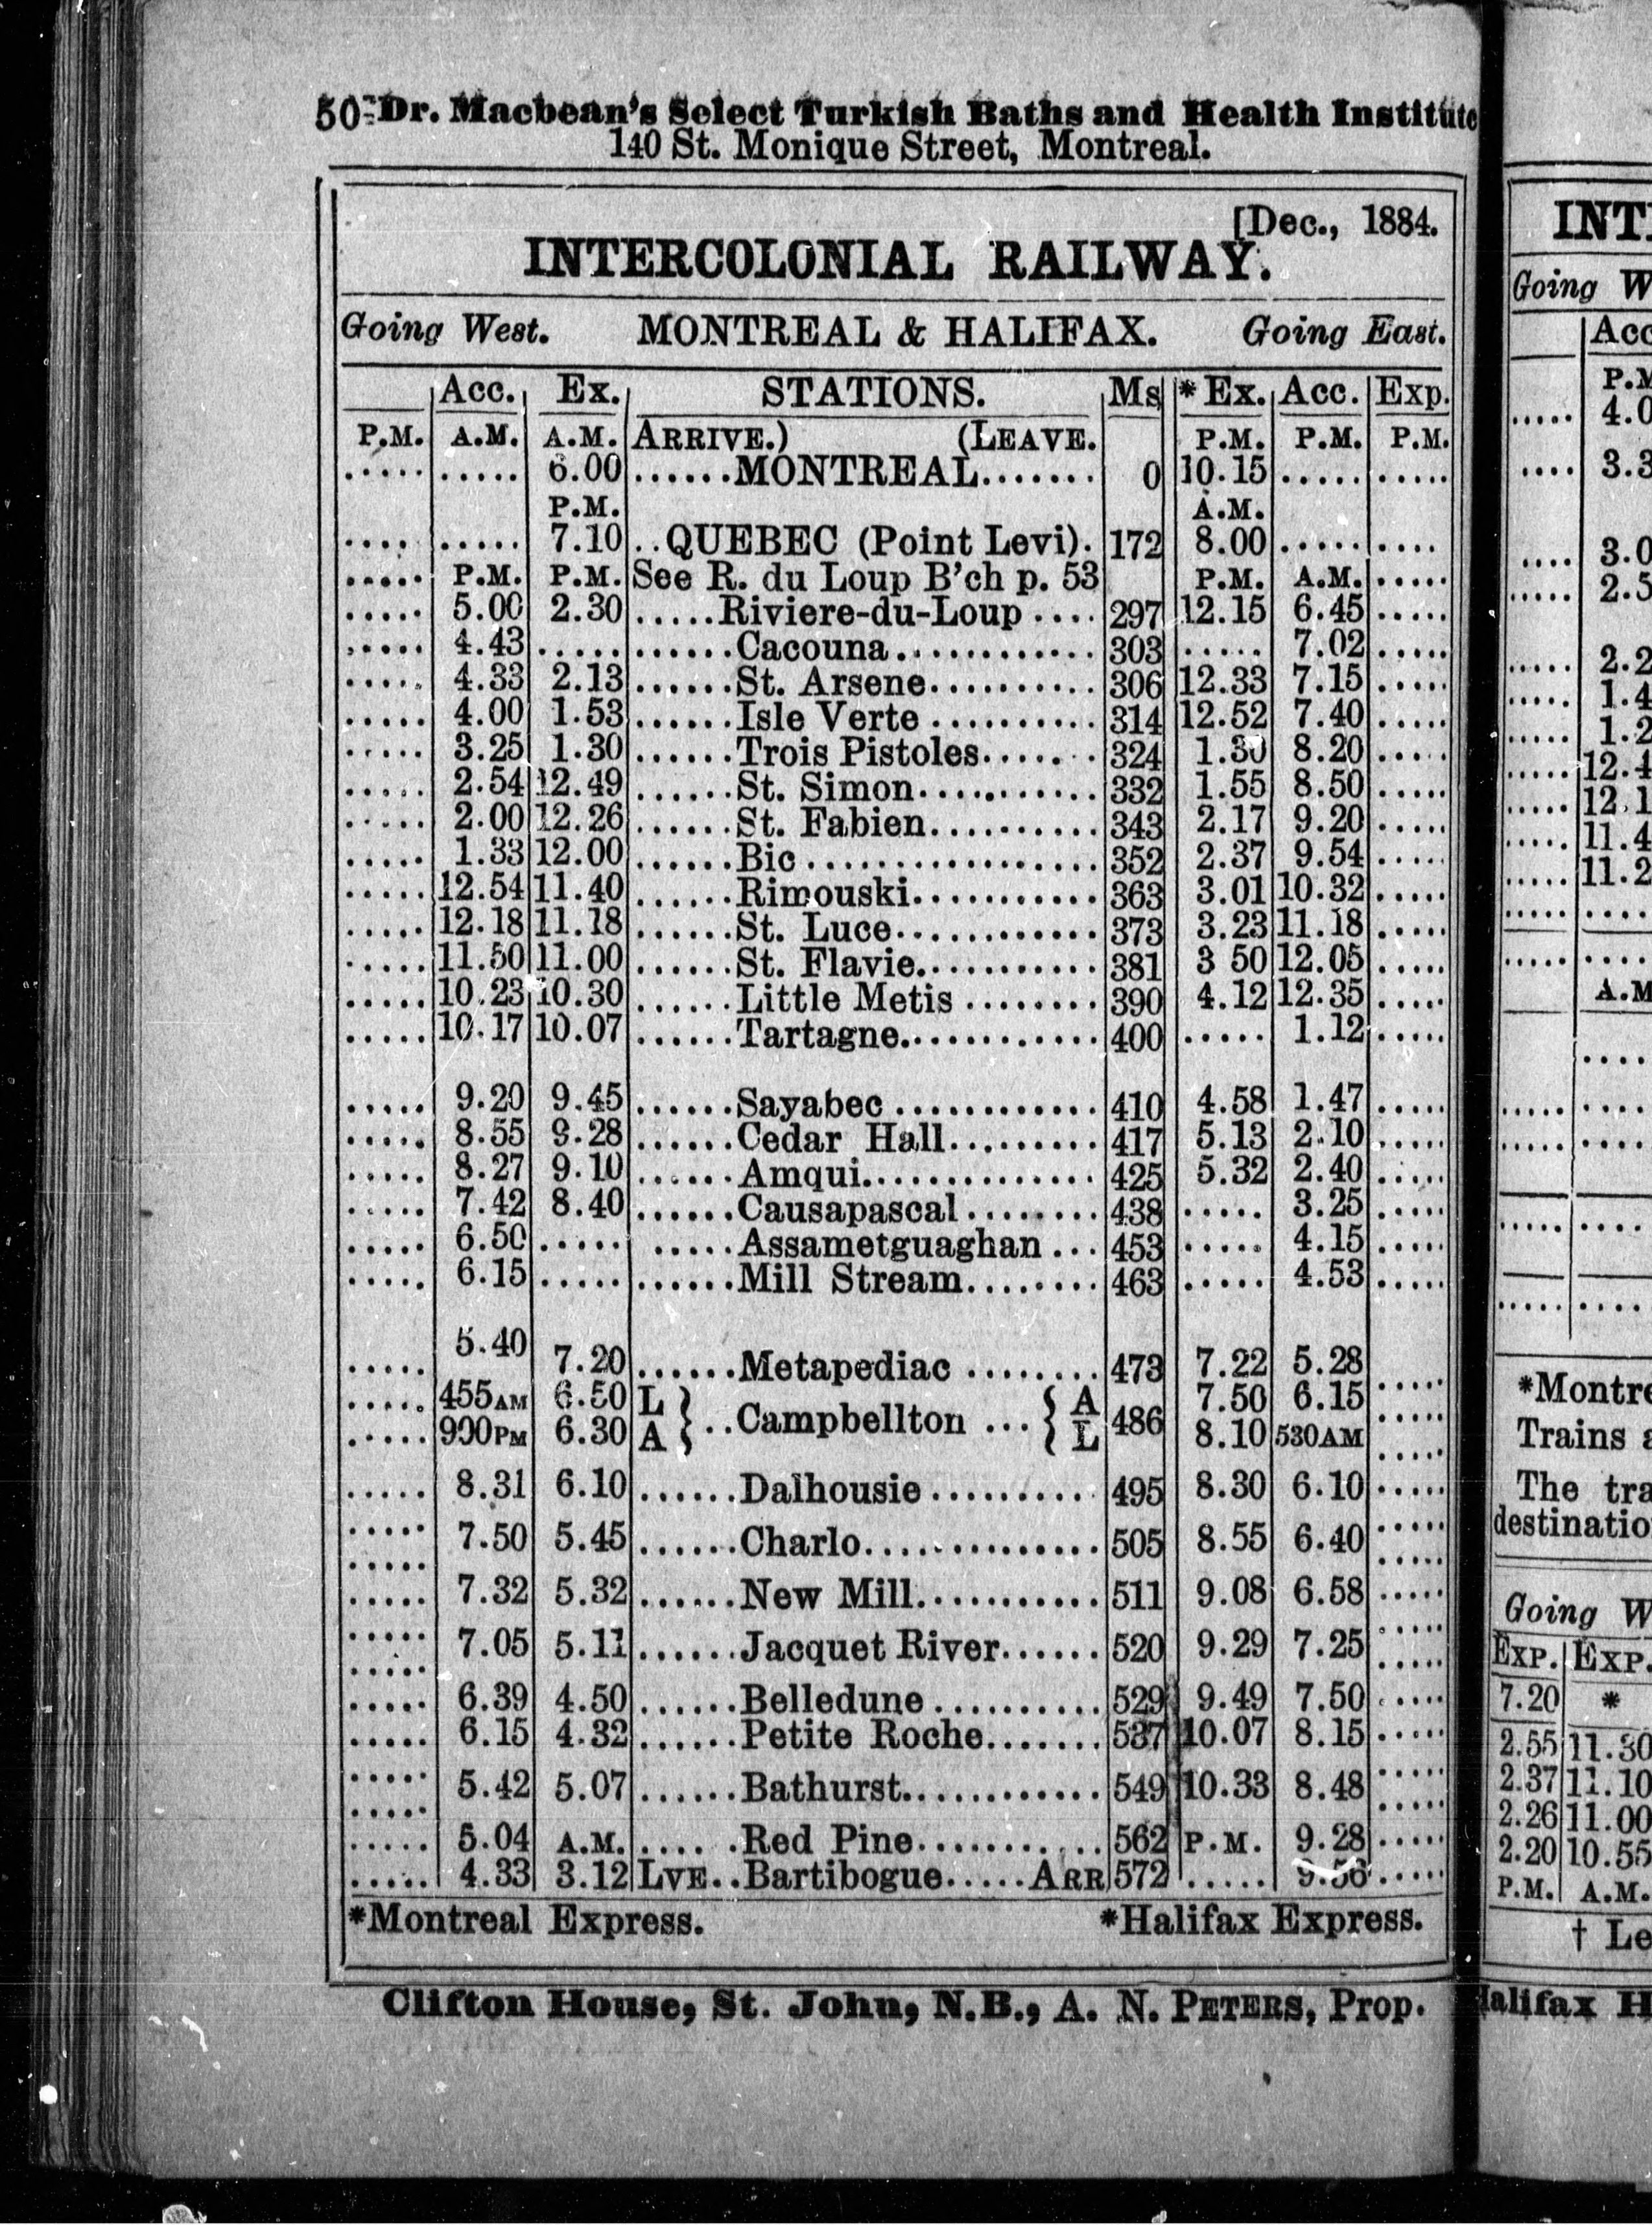 50-Dr. Macbean's Select Turkish Baths and Health Institute
140 St. Monique Street, Montreal.
[Dec., 1884.
INTERCOLONIAL RAILWAY.
Going West. MONTREAL & HALIFAX. Going East.
Acc. Ex. STATIONS. Ms *Ex. Acc. Exp.
P.M. A.M. A.M. ARRIVE.) (LEAVE. P.M. P.M. P.M.
..... ..... 6.00 ......MONTREAL....... 0 10.15 ..... .....
P.M. A.M.
..... ..... 7.10 ..QUEBEC (Point Levi). 172 8.00 ..... ....
..... P.M. P.M. See R. du Loup B'ch p. 53 P.M. A.M. .....
..... 5.00 2.30 .....Riviere-du-Loup .... 297 12.15 6.45 .....
..... 4.43 ..... ......Cacouna............ 303 ..... 7.02 .....
..... 4.33 2.13 ......St. Arsene.......... 306 12.33 7.15 .....
..... 4.00 1.53 ......Isle Verte .......... 314 12.52 7.40 .....
..... 3.25 1.30 ......Trois Pistoles....... 324 1.30 8.20 .....
..... 2.54 12.49 ......St. Simon........... 332 1.55 8.50 .....
..... 2.00 12.26 ......St. Fabien.......... 343 2.17 9.20 .....
..... 1.33 12.00 ......Bic .................. 352 2.37 9.54 .....
..... 12.54 11.40 ......Rimouski........... 363 3.01 10.32 .....
..... 12.18 11.18 ......St. Luce............ 373 3.23 11.18 .....
..... 11.50 11.00 ......St. Flavie........... 381 3 50 12.05 .....
..... 10.23 10.30 ......Little Metis ........ 390 4.12 12.35 .....
..... 10.17 10.07 ......Tartagne............ 400 ..... 1.12 .....
..... 9.20 9.45 ......Sayabec ............ 410 4.58 1.47 .....
..... 8.55 9.28 ......Cedar Hall......... 417 5.13 2.10 .....
..... 8.27 9.10 ......Amqui.............. 425 5.32 2.40 .....
..... 7.42 8.40 ......Causapascal ........ 438 ..... 3.25 .....
..... 6.50 ..... .....Assametguaghan ... 453 ..... 4.15 .....
..... 6.15 ..... ......Mill Stream........ 463 ..... 4.53 .....
..... 5.40 7.20 ......Metapediac ........ 473 7.22 5.28
..... 455AM 6.50 L } ..Campbellton ... { A 486 7.50 6.15 .....
..... 900PM 6.30 A } { L 8.10 530AM .....
..... 8.31 6.10 ......Dalhousie .......... 495 8.30 6.10 .....
..... 7.50 5.45 ......Charlo............... 505 8.55 6.40 .....
..... 7.32 5.32 ......New Mill........... 511 9.08 6.58 .....
..... 7.05 5.11 ......Jacquet River...... 520 9.29 7.25 .....
..... 6.39 4.50 ......Belledune .......... 529 9.49 7.50 .....
..... 6.15 4.32 ......Petite Roche....... 537 10.07 8.15 .....
..... 5.42 5.07 ......Bathurst............ 549 10.33 8.48 .....
..... 5.04 A.M. .... .Red Pine........... 562 P.M. 9.28 .....
..... 4.33 3.12 LVE..Bartibogue.....ARR 572 ..... 9.56 .....
*Montreal Express. *Halifax Express.
Clifton House, St. John, N.B., A. N. PETERS, Prop.
Going W
Acc
P.M
4.0
3.3
3.0
2.5
2.2
1.4
1.2
12.4
12.1
11.4
11.2
A.M
*Montre
Trains a
The tra
destinatio
Going W
EXP. EXP.
7.20 *
2.55 11.30
2.37 11.10
2.26 11.00
2.20 10.55
P.M. A.M.
† Le
Halifax H